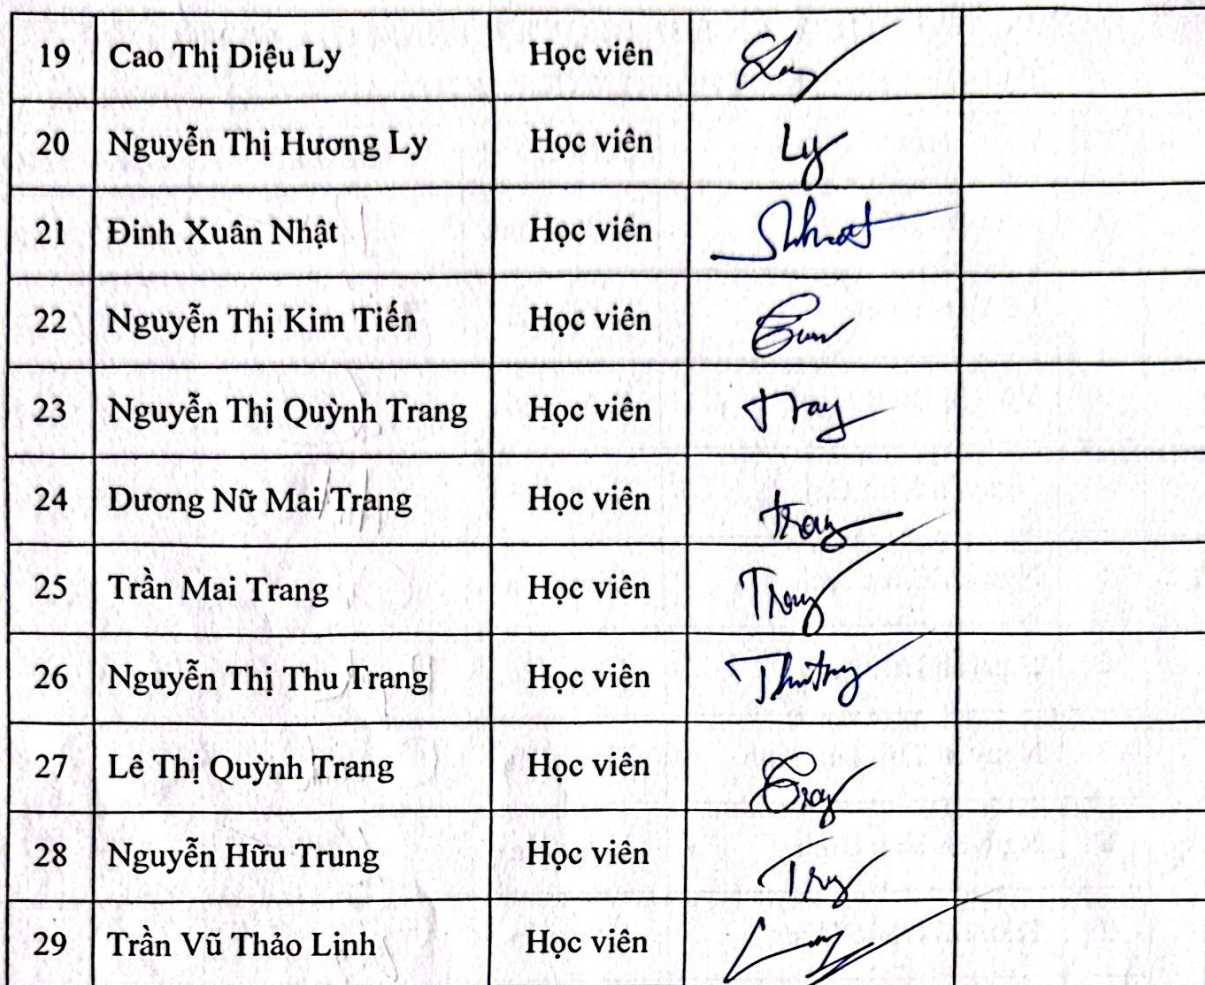 19 Cao Thị Diệu Ly Học viên
20 Nguyễn Thị Hương Ly Học viên Ly
21 Đinh Xuân Nhật Học viên Nhật
22 Nguyễn Thị Kim Tiến Học viên
23 Nguyễn Thị Quỳnh Trang Học viên Trang
24 Dương Nữ Mai Trang Học viên Trang
25 Trần Mai Trang Học viên Trang
26 Nguyễn Thị Thu Trang Học viên
27 Lê Thị Quỳnh Trang Học viên
28 Nguyễn Hữu Trung Học viên
29 Trần Vũ Thảo Linh Học viên